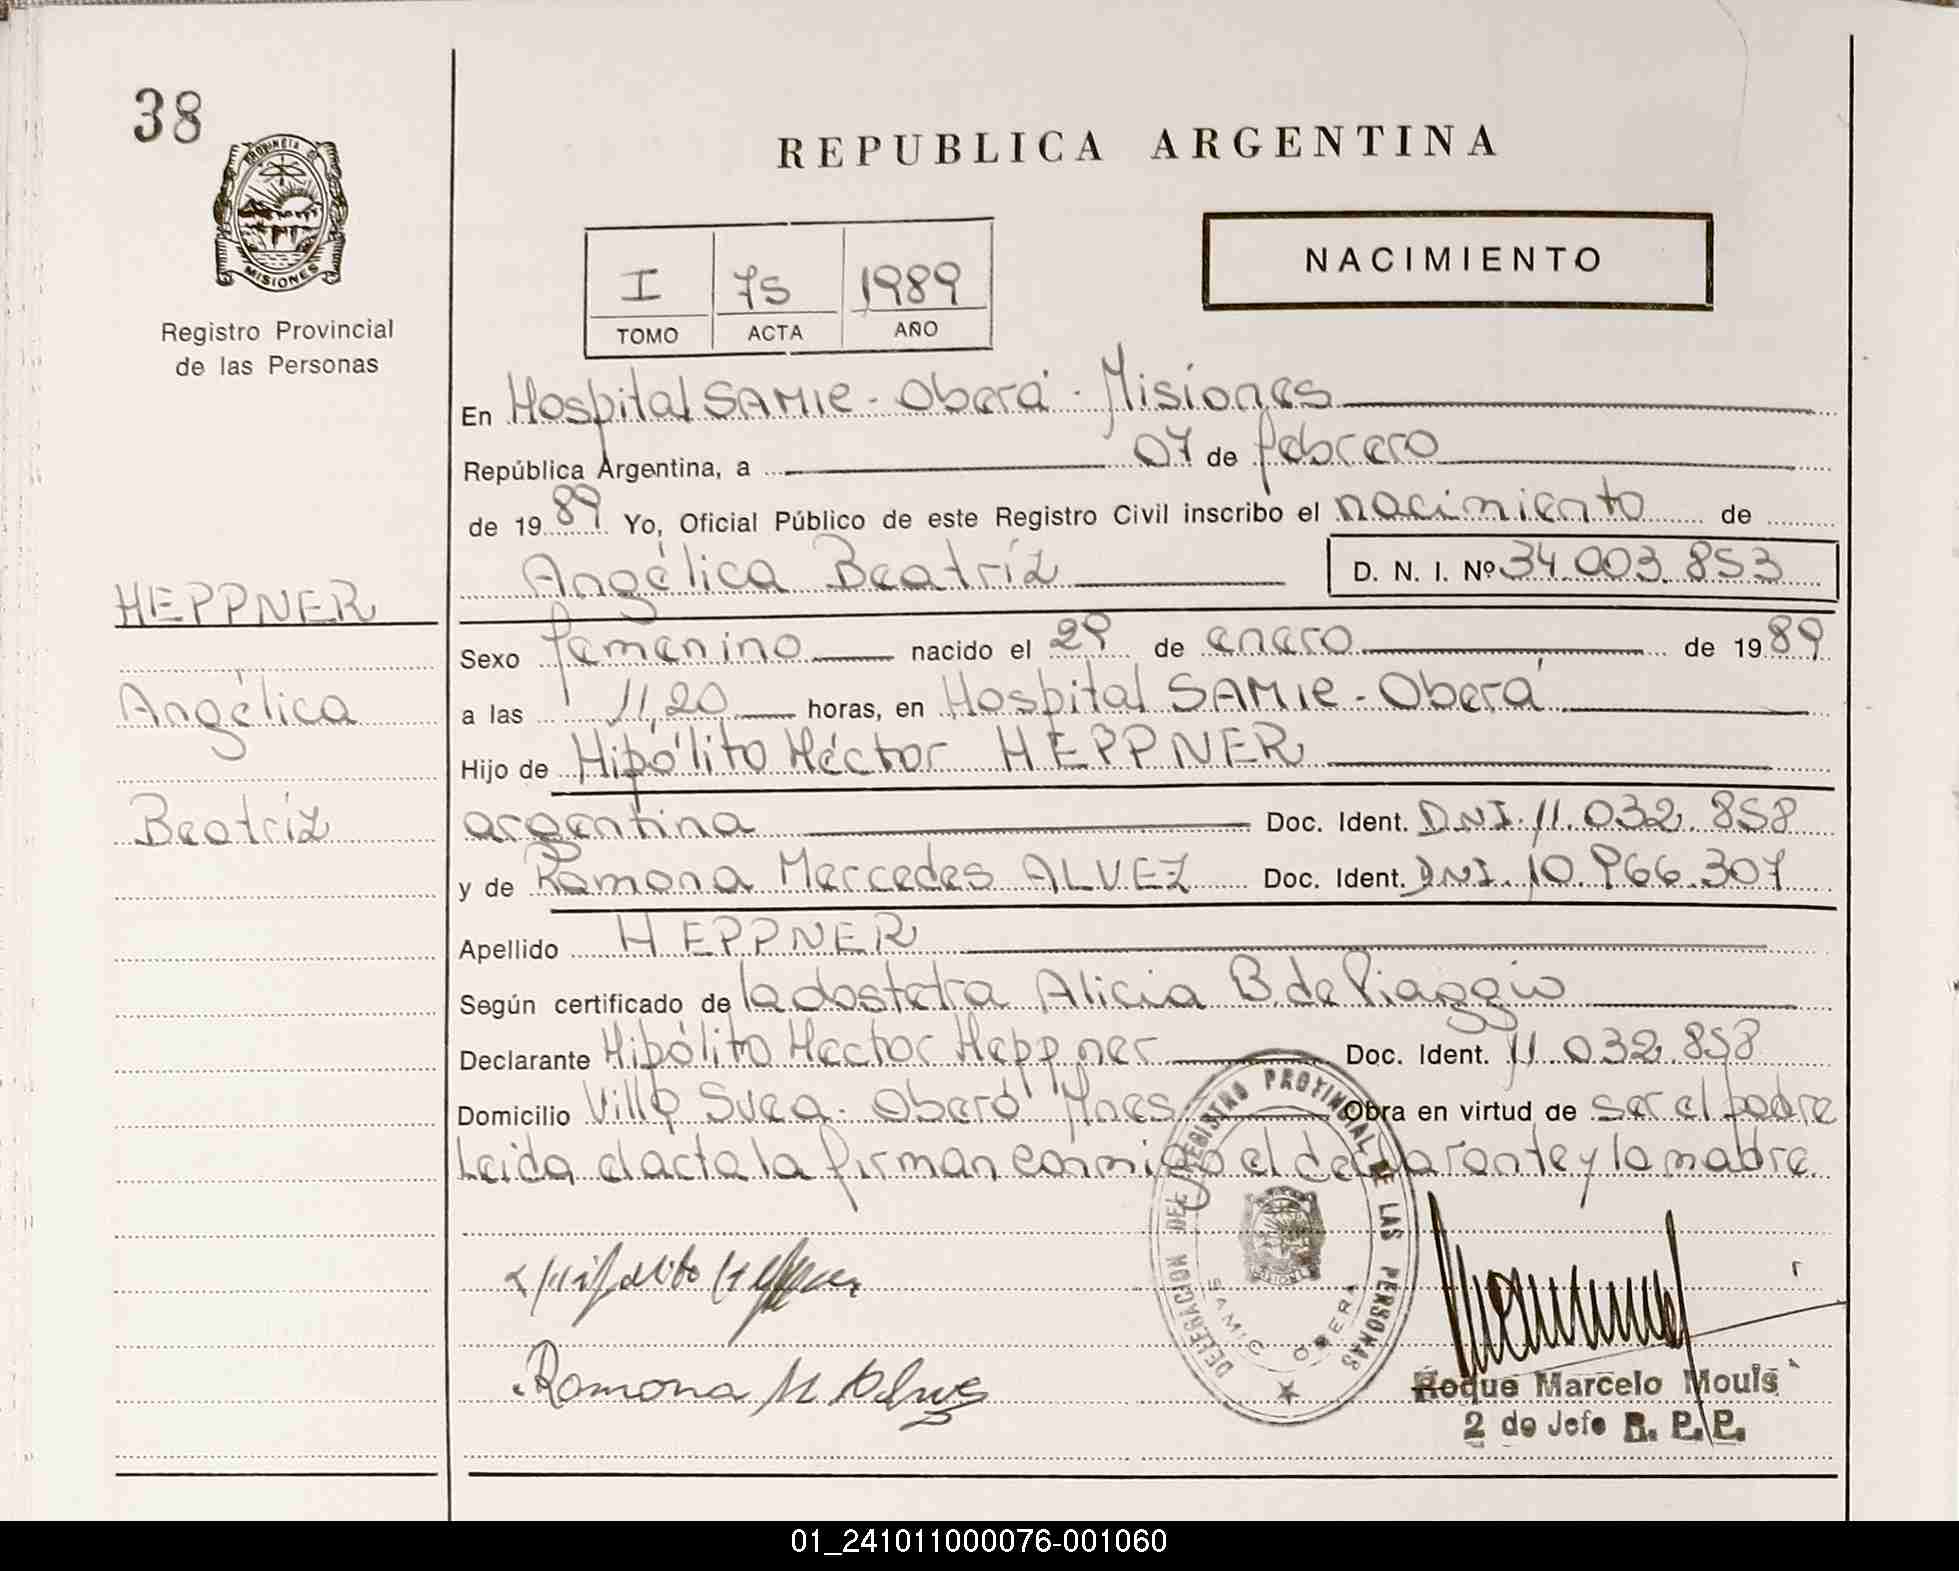 38
PROVINCIA DE
MISIONES
Registro Provincial
de las Personas
REPUBLICA ARGENTINA
I 75 1989
TOMO ACTA AÑO
NACIMIENTO
HEPPNER
Angélica
Beatríz
En Hospital SAMIC - Oberá - Misiones
República Argentina, a 07 de febrero
de 1989 Yo, Oficial Público de este Registro Civil inscribo el nacimiento de
Angélica Beatríz D. N. I. Nº 34.003.853
Sexo femenino nacido el 29 de enero de 1989
a las 11,20 horas, en Hospital SAMIC - Oberá
Hijo de Hipólito Héctor HEPPNER
argentina Doc. Ident. DNI. 11.032.858
y de Ramona Mercedes ALVEZ Doc. Ident. DNI. 10.966.307
Apellido HEPPNER
Según certificado de la dostetra Alicia B. de Piaggio
Declarante Hipólito Hector Heppner Doc. Ident. 11.032.858
Domicilio Villa Svea - Oberá Mnes Obra en virtud de ser el padre
Leida el acta la firman conmigo el declarante y la madre.
Hipolito Heppner
Ramona M
DELEGACION DEL REGISTRO PROVINCIAL DE LAS PERSONAS
SAMIC OBERA
Roque Marcelo Mouls
2 do Jefe R. P. P.
01_241011000076-001060